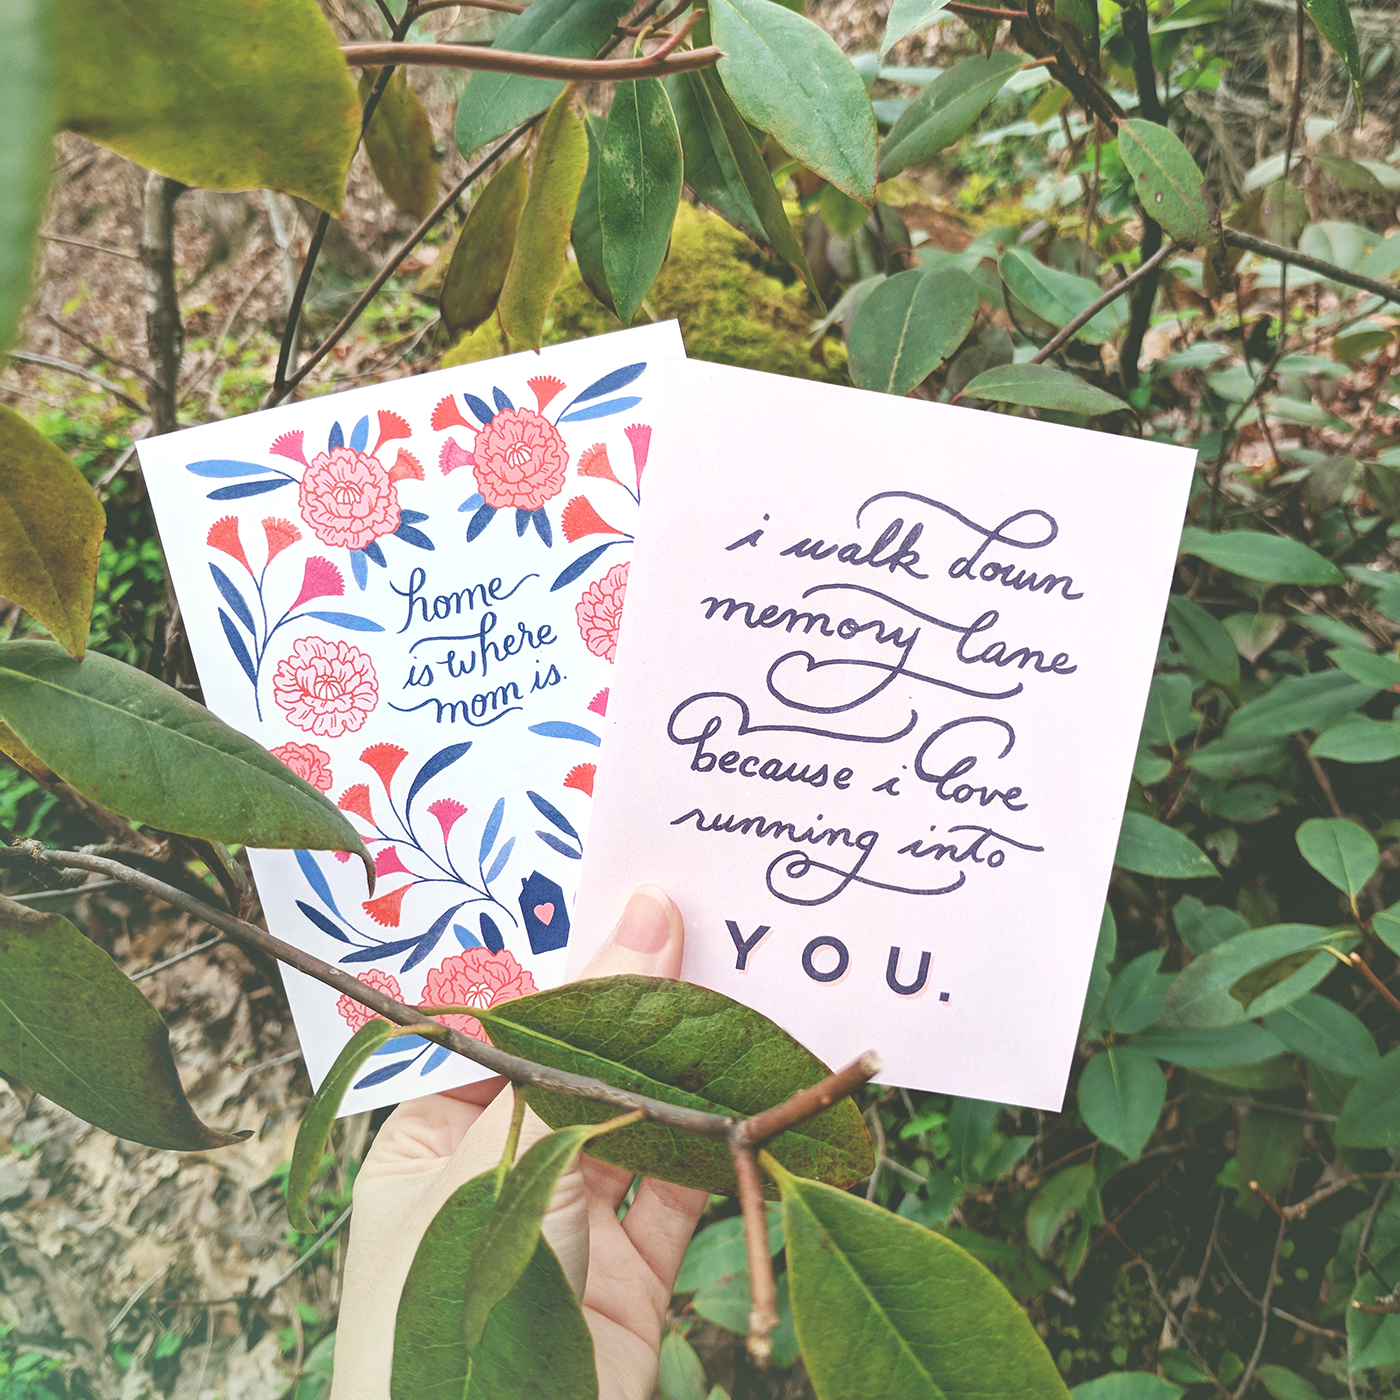 home
is where
mom is.
i walk down
memory lane
because i love
running into
YOU.